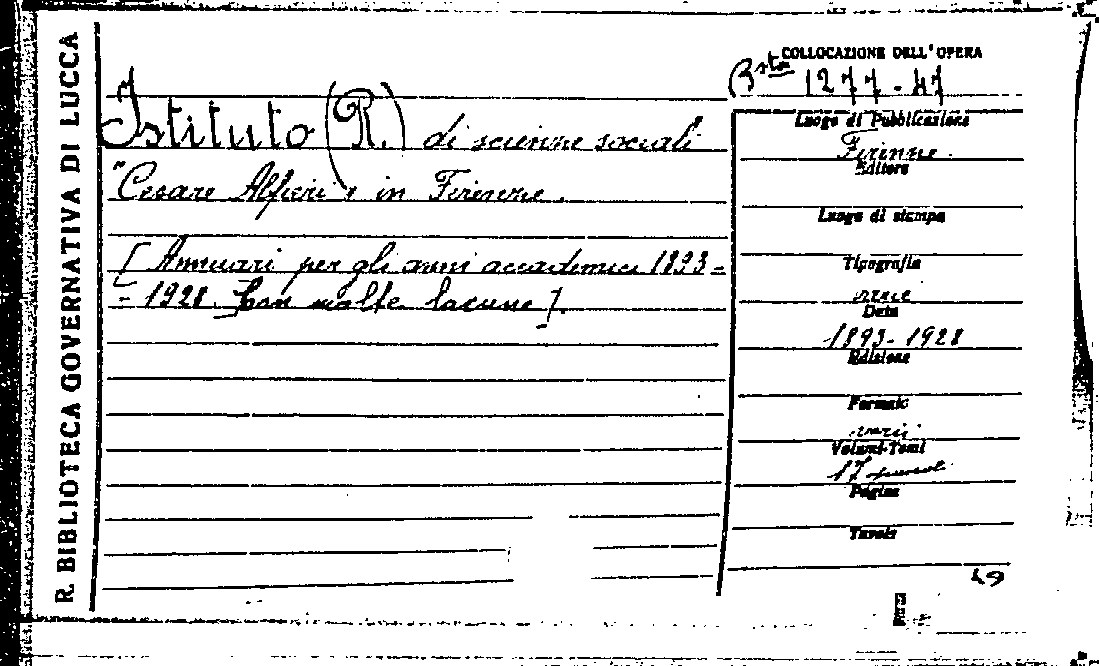 R. BIBLIOTECA GOVERNATIVA DI LUCCA
COLLOCAZIONE DELL'OPERA
Bsta 1277-47
Istituto (R.) di scienze sociali
"Cesare Alfieri" in Firenze.
[Annuari per gli anni accademici 1893-
-1928. Con molte lacune].
Luogo di Pubblicazione
Firenze
Editore
Luogo di stampa
Tipografia
varie
Data
1893-1928
Edizione
Formato
varii
Volumi-Tomi
17
Pagine
Tavole
49